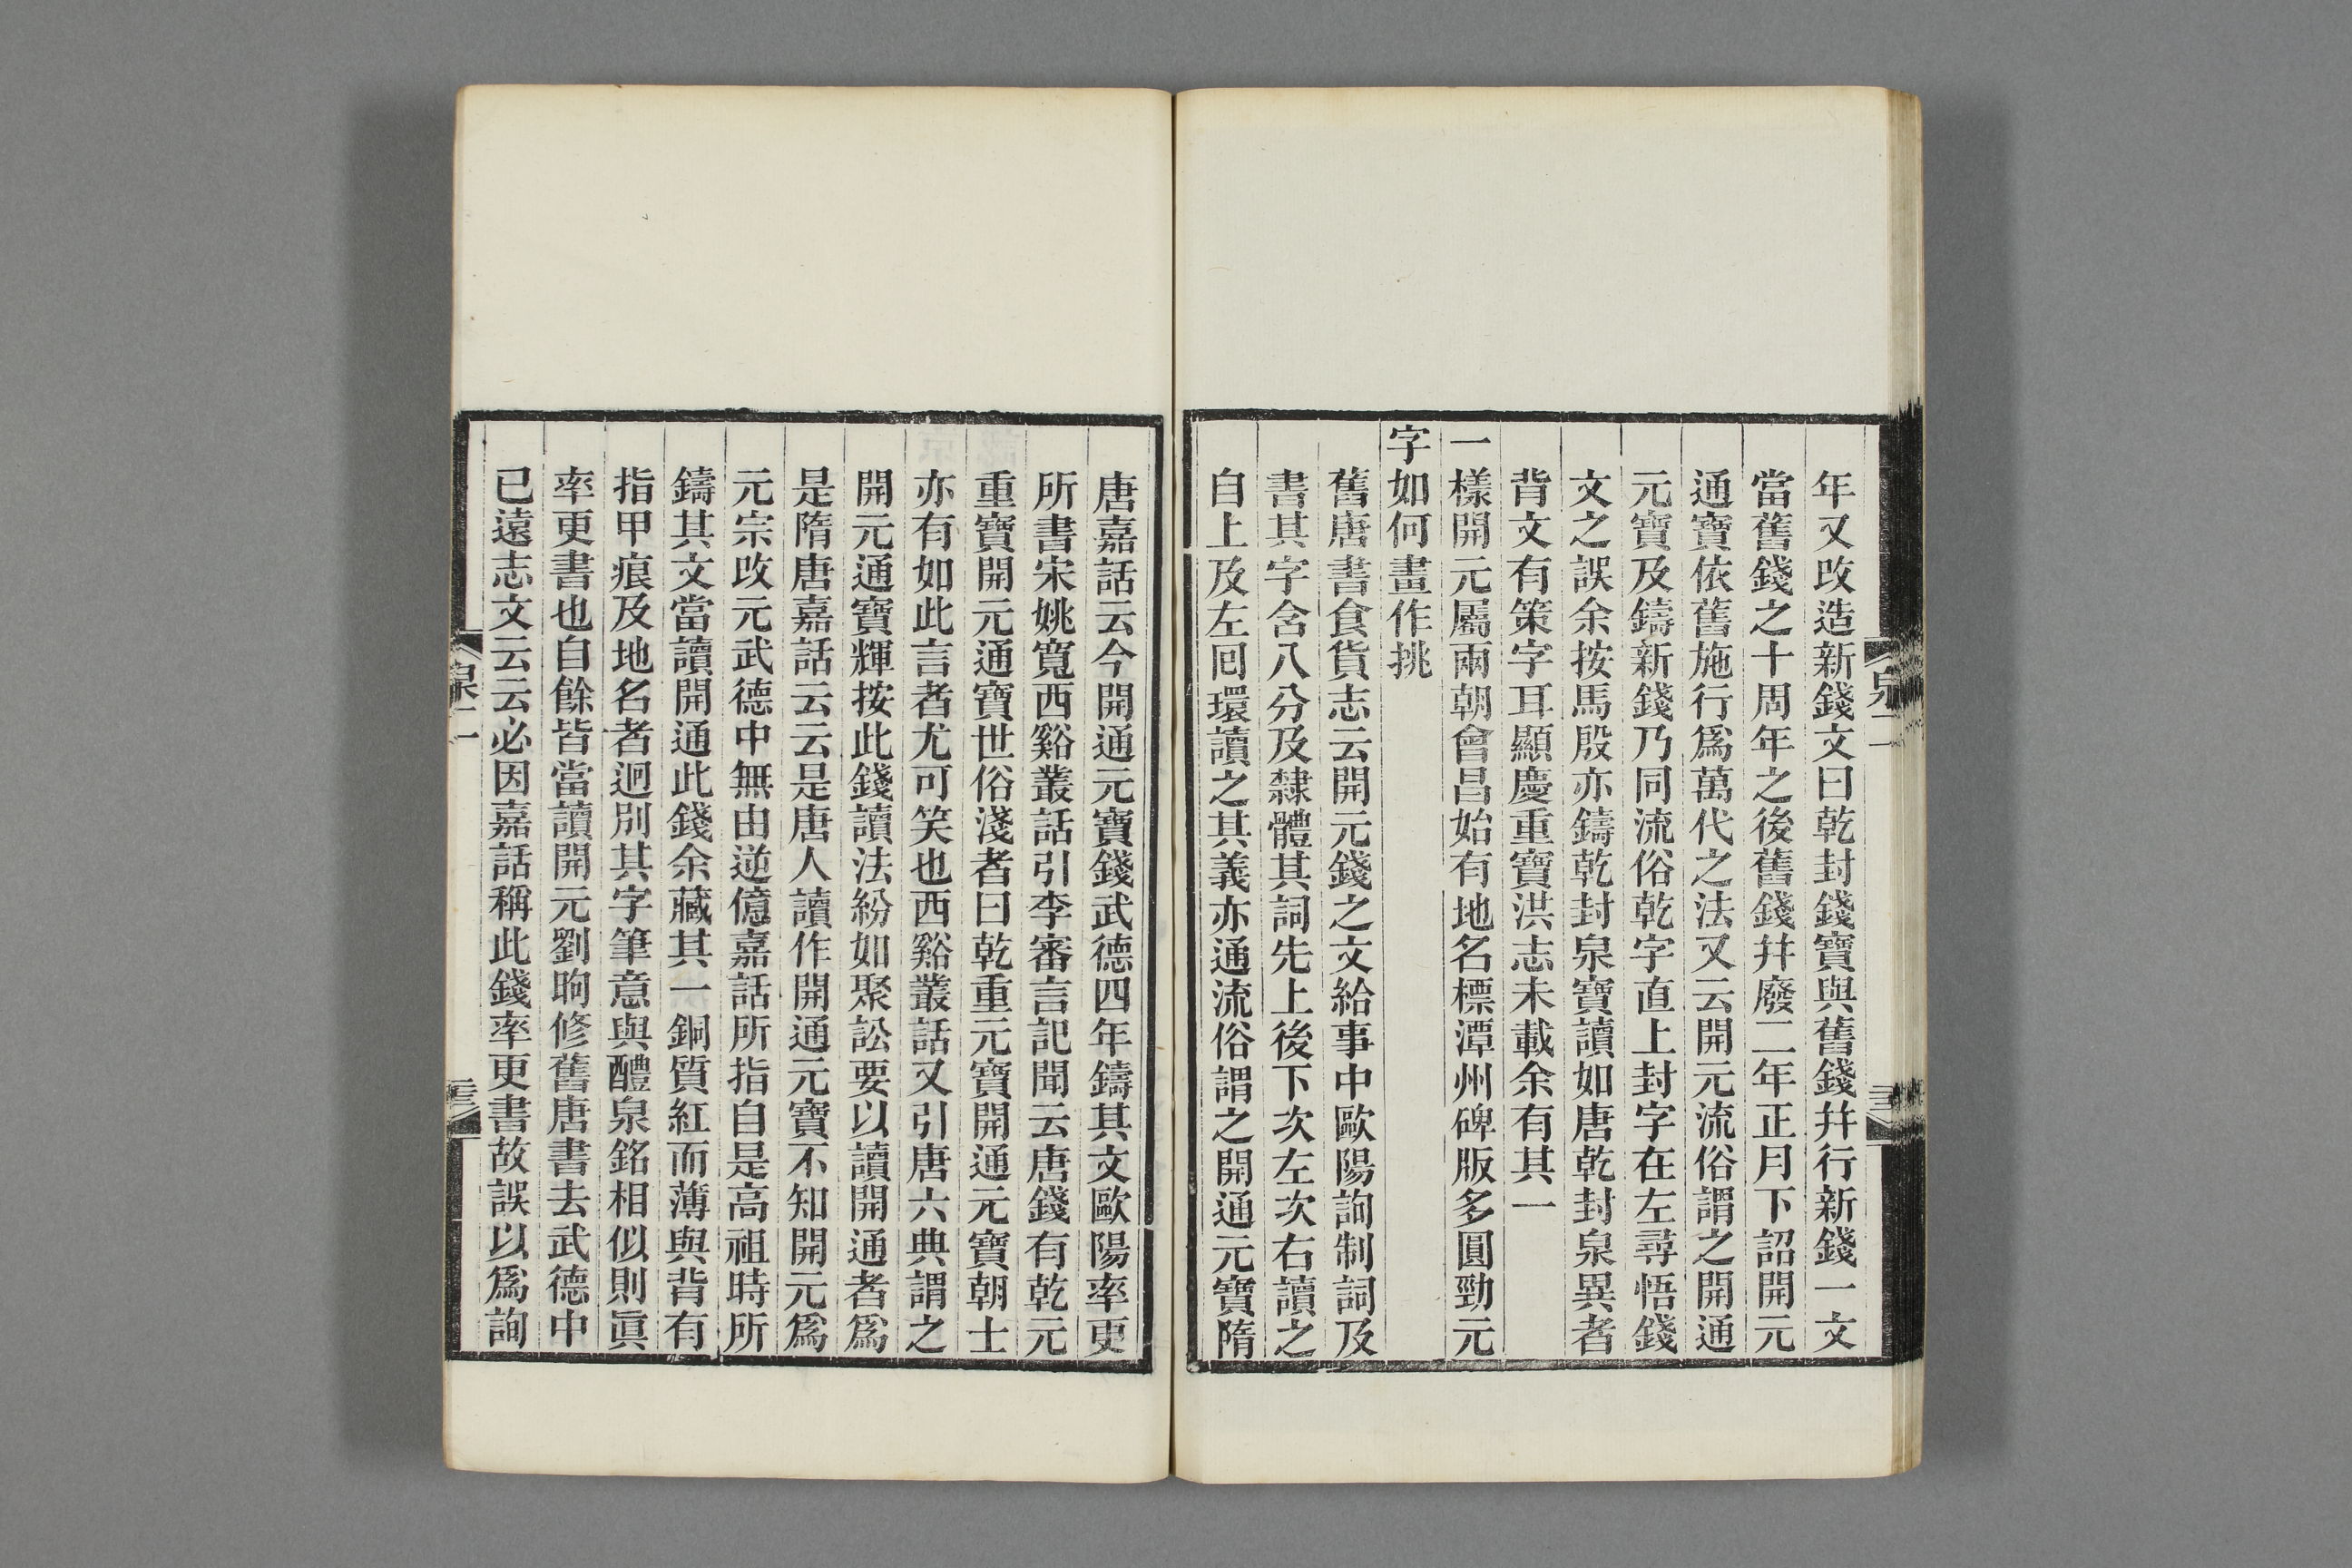 年又改造新錢文曰乾封錢寶與舊錢幷行新錢一文
當舊錢之十周年之後舊錢幷廢二年正月下詔開元
通寶依舊施行爲萬代之法又云開元流俗謂之開通
元寶及鑄新錢乃同流俗乾字直上封字在左尋悟錢
文之誤余按馬殷亦鑄乾封泉寶讀如唐乾封泉異者
背文有策字耳顯慶重寶洪志未載余有其一
一樣開元屬兩朝會昌始有地名標潭州碑版多圓勁元
字如何畫作挑
舊唐書食貨志云開元錢之文給事中歐陽詢制詞及
書其字含八分及隸體其詞先上後下次左次右讀之
自上及左囘環讀之其義亦通流俗謂之開通元寶隋
唐嘉話云今開通元寶錢武德四年鑄其文歐陽率更
所書宋姚寬西谿叢話引李審言記聞云唐錢有乾元
重寶開元通寶世俗淺者曰乾重元寶開通元寶朝士
亦有如此言者尤可笑也西谿叢話又引唐六典謂之
開元通寶輝按此錢讀法紛如聚訟要以讀開通者爲
是隋唐嘉話云云是唐人讀作開通元寶不知開元爲
元宗改元武德中無由逆億嘉話所指自是高祖時所
鑄其文當讀開通此錢余藏其一銅質紅而薄與背有
指甲痕及地名者迥別其字筆意與醴泉銘相似則眞
率更書也自餘皆當讀開元劉昫修舊唐書去武德中
已遠志文云云必因嘉話稱此錢率更書故誤以爲詢